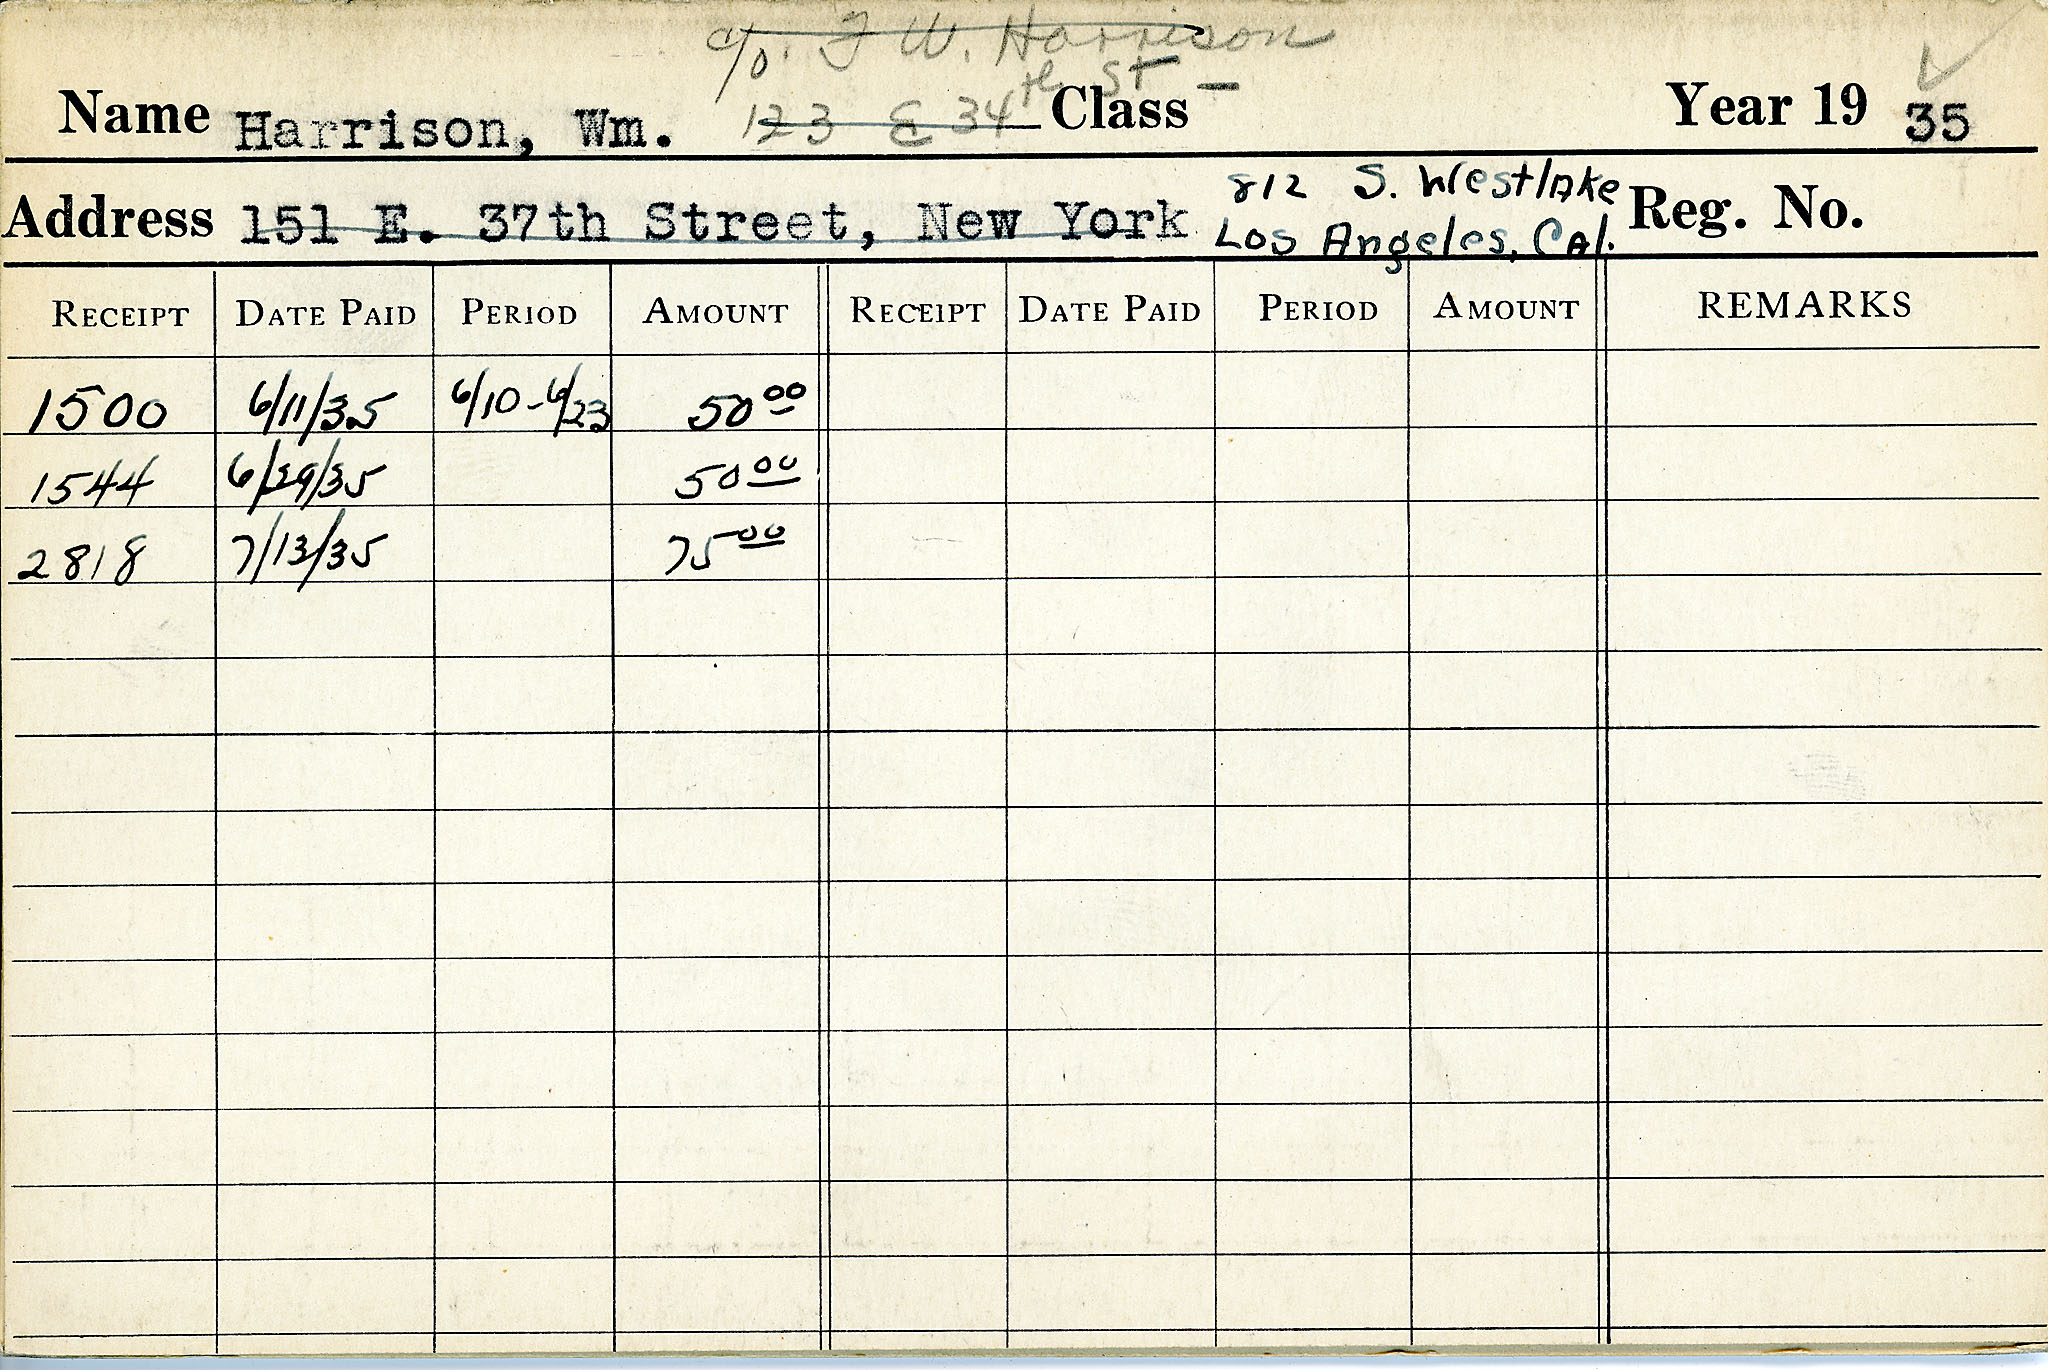 c/o. J W. Harrison
123 E 34th St —
Name Harrison, Wm. Class Year 19 35
812 S. Westlake
Address 151 E. 37th Street, New York Los Angeles, Cal. Reg. No.
RECEIPT DATE PAID PERIOD AMOUNT RECEIPT DATE PAID PERIOD AMOUNT REMARKS
1500 6/11/35 6/10-6/23 50 00
1544 6/29/35 50 00
2818 7/13/35 75 00